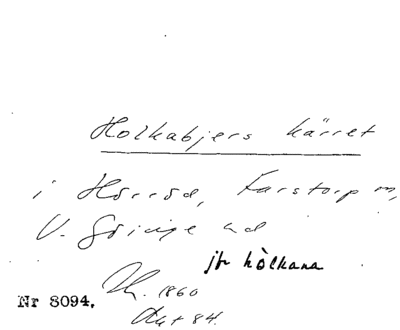 Holkabjers kärret
i Hörröd, Farstorp sn,
V. Göinge hd
jfr hòlkana
Nr 8094.
1860
Akt 84.